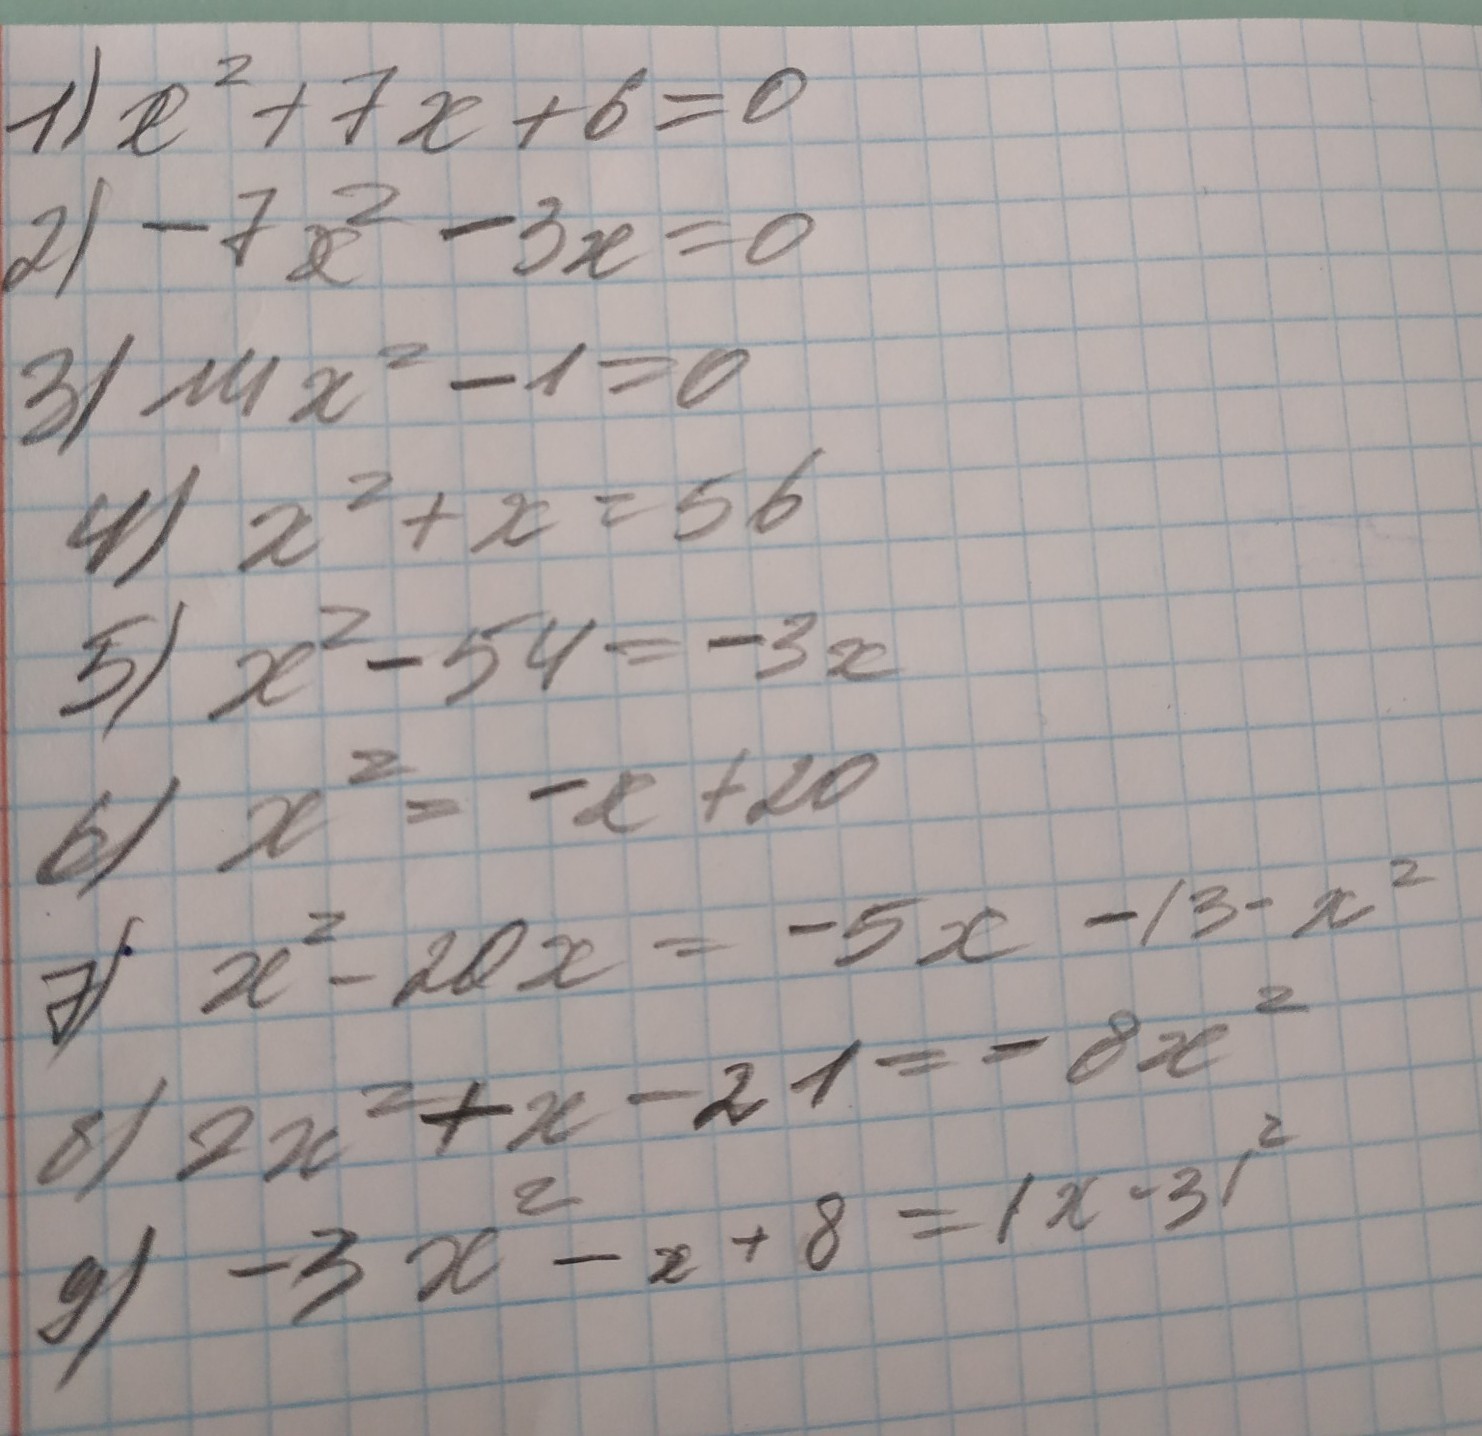 1) x² + 7x + 6 = 0
2) -7x² - 3x = 0
3) 144x² - 1 = 0
4) x² + x = 56
5) x² - 54 = -3x
6) x² = -x + 20
7) x² - 20x = -5x - 13 - x²
8) 2x² + x - 21 = -8x²
9) -3x² - x + 8 = (x - 3)²